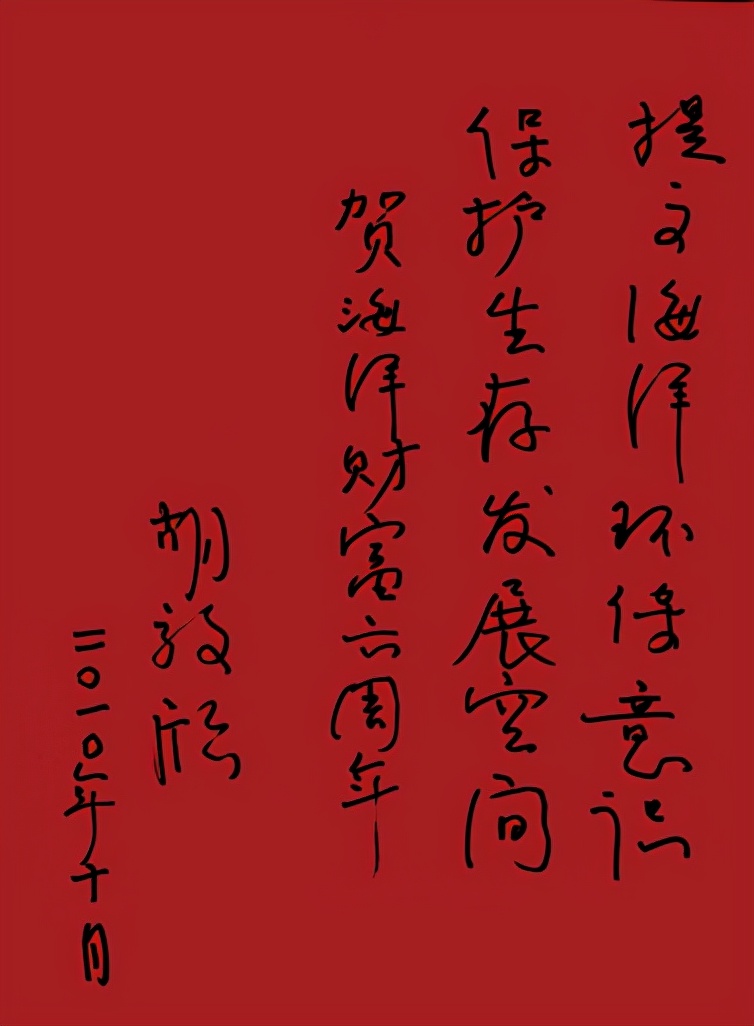 提文海洋环保意识
保护生存发展空间
贺海洋财富六周年
胡敦欣
二〇一〇年十月